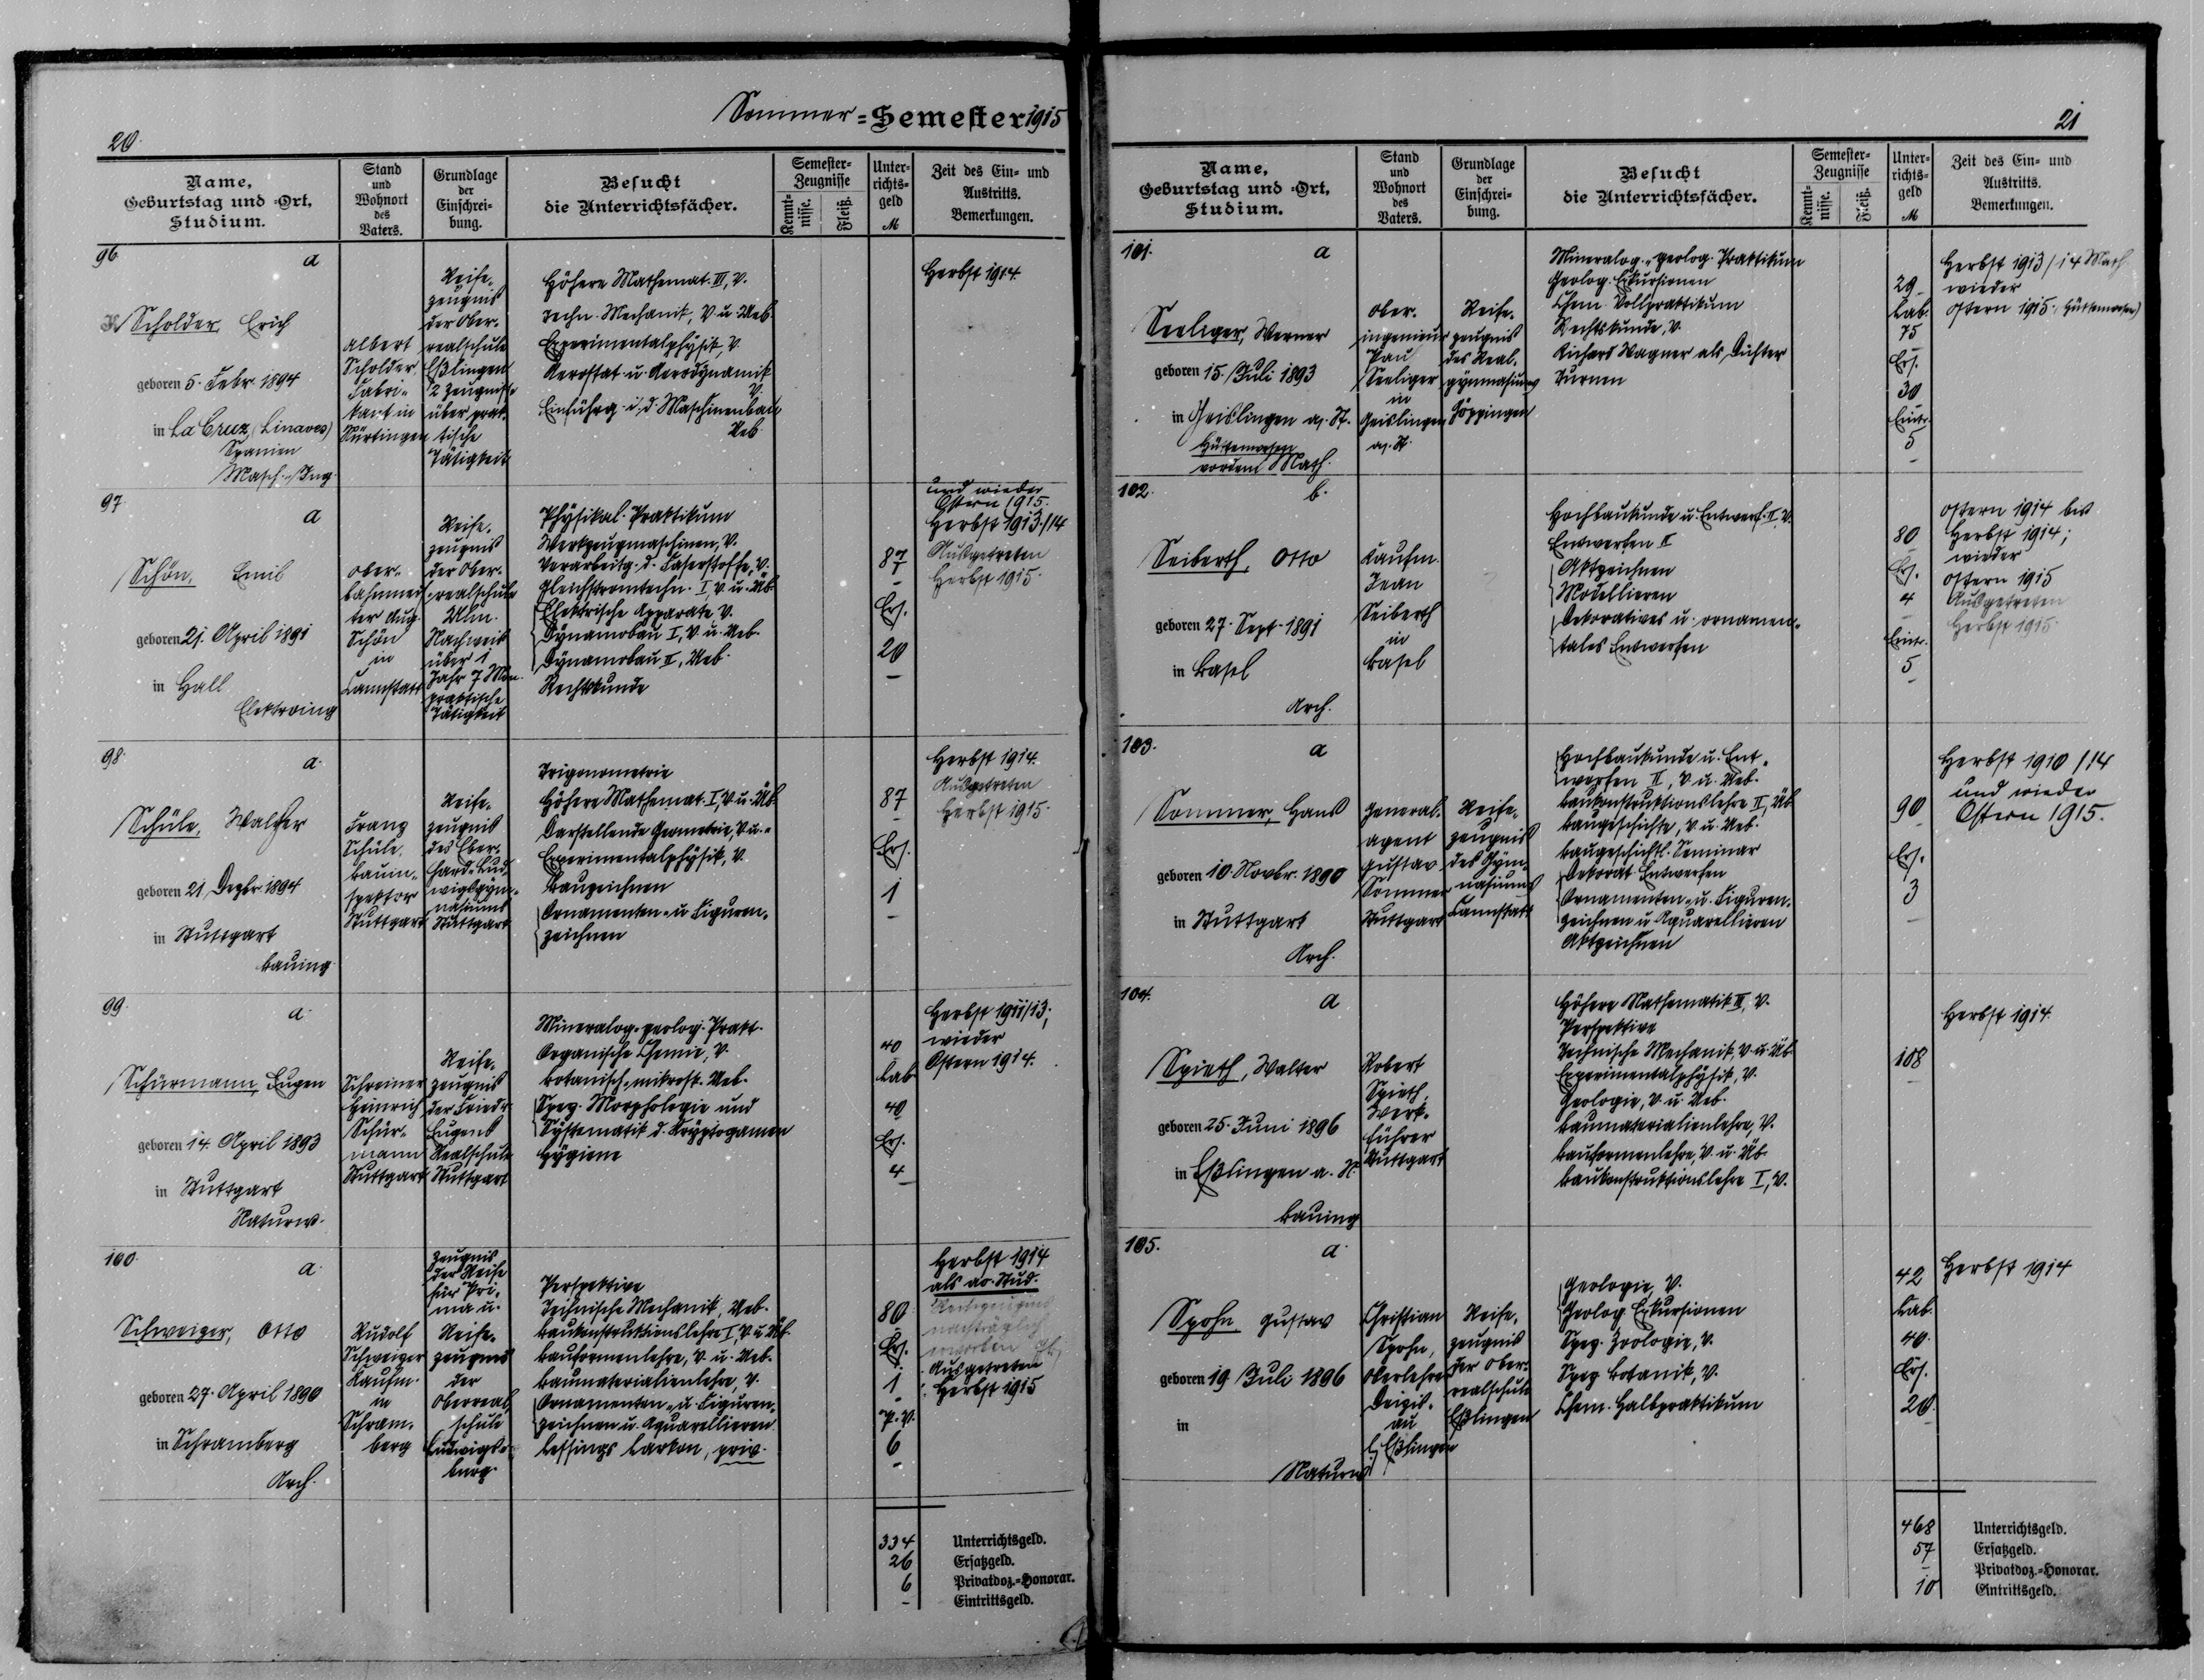 20.
Sommer-Semester 1915
Name,
Geburtstag und -Ort,
Studium.
Stand
und
Wohnort
des
Vaters.
Grundlage
der
Einschrei-
bung.
Besucht
die Unterrichtsfächer.
Semester-
Zeugnisse
Kennt-
nisse.
Fleiß.
Unter-
richts-
geld
M
Zeit des Ein- und
Austritts.
Bemerkungen.
96.
a
Scholder, Erich
geboren 5. Febr. 1894
in La Cruz, (Linares)
Spanien
Masch.-Ing.
Albert
Scholder
Fabri-
kant in
Nürtingen
Reife-
zeugnis
der Ober-
realschule
Eßlingen
2 Zeugnisse
über prak-
tische
Tätigkeit
Höhere Mathemat. III, V.
Techn. Mechanik, V. u. Ueb.
Experimentalphysik, V.
Aerostat. u. Aerodynamik
V.
Einführg. i. d. Maschinenbau
Ueb.
Herbst 1914.
97.
a
Schön, Emil
geboren 21. April 1891
in Hall
Elektroing
Ober-
bahnmeis-
ter Aug.
Schön
in
Cannstatt
Reife-
zeugnis
der Ober-
realschule
Ulm.
Nachweis
über 1
Jahr 7 Mon.
praktische
Tätigkeit
Physikal. Praktikum
Werkzeugmaschinen, V.
Verarbeitg. d. Faserstoffe, V.
Gleichstromtechn. I, V. u. Üb.
Elektrische Apparate V.
Dynamobau I, V. u. Ueb.
Dynamobau II, Ueb.
Rechtskunde
87
-
Ers.
20
-
und wieder
Ostern 1915.
Herbst 1913/14
Ausgetreten
Herbst 1915.
98.
a.
Schüle, Walther
geboren 21. Dezbr. 1894
in Stuttgart
Bauing.
Franz
Schüle,
Bauin-
spektor
Stuttgart
Reife-
zeugnis
des Eber-
hard-Lud-
wigsgym-
nasiums
Stuttgart
Trigonometrie
Höhere Mathemat. I, V. u. Üb.
Darstellende Geometrie, V. u. "
Experimentalphysik, V.
Bauzeichnen
Ornamenten- u. Figuren-
zeichnen
87
-
Ers.
1
-
Herbst 1914.
Ausgetreten
Herbst 1915.
99.
a.
Schürmann, Eugen
geboren 14. April 1893
in Stuttgart
Naturw.
Schreiner
Heinrich
Schür-
mann
Stuttgart
Reife-
zeugnis
der Friedr.
Eugens
Realschule
Stuttgart
Mineralog.-geolog. Prakt.
Organische Chemie, V.
Botanisch-mikrosk. Ueb.
Spez. Morphologie und
Systematik d. Kryptogamen
Hygiene
40
Lab.
40
Ers.
4
-
Herbst 1911/13;
wieder
Ostern 1914.
100.
a.
Schweizer, Otto
geboren 27. April 1890
in Schramberg
Arch.
Rudolf
Schweizer
Kaufm.
in
Schram-
berg
Zeugnis
der Reife
für Pri-
ma u.
Reife-
zeugnis
der
Oberreal-
schule
Ludwigs-
burg.
Perspektive
Technische Mechanik, Ueb.
Baukonstruktionslehre I, V. u. Üb.
Bauformenlehre, V. u. Ueb.
Baumaterialienlehre, V.
Ornamenten- u. Figuren-
zeichnen u. Aquarellieren
Lessings Laokon, priv.
80
Ers.
1
-
P. V.
6
-
Herbst 1914
als ao. Stud.
nachträglich
erworben
Ausgetreten
Herbst 1915
334 Unterrichtsgeld.
26 Ersatzgeld.
6 Privatdoz.-Honorar.
- Eintrittsgeld.
21
Name,
Geburtstag und -Ort,
Studium.
Stand
und
Wohnort
des
Vaters.
Grundlage
der
Einschrei-
bung.
Besucht
die Unterrichtsfächer.
Semester-
Zeugnisse
Kennt-
nisse.
Fleiß.
Unter-
richts-
geld
M
Zeit des Ein- und
Austritts.
Bemerkungen.
101.
a
Seeliger, Werner
geboren 15. Juli 1893
in Geislingen a. St.
Hüttenwesen
vordem Math.
Ober-
ingenieur
Paul
Seeliger
in
Geislingen
a. St.
Reife-
zeugnis
des Real-
gymnasiums
Göppingen
Mineralog.-geolog. Praktikum
Geolog. Exkursionen
Chem. Vollpraktikum
Rechtskunde, V.
Richard Wagner als Dichter
Turnen
29
Lab.
75
-
Ers.
30
Eintr.
5
-
Herbst 1913/14 Math
wieder
Ostern 1915. Hüttenwesen)
102.
b.
Seiberth, Otto
geboren 27. Sept. 1891
in Basel
Arch.
Kaufm.
Jean
Seiberth
in
Basel
Hochbaukunde u. Entwerf. II, V.
Entwerfen II
Aktzeichnen
Modellieren
Dekoratives u. ornamen-
tales Entwerfen
80
-
Ers.
4
-
Eintr.
5
-
Ostern 1914 bis
Herbst 1914;
wieder
Ostern 1915
Ausgetreten
Herbst 1915.
103.
a
Sommer, Hans
geboren 10. Novbr. 1890
in Stuttgart
Arch.
General-
agent
Gustav
Sommer
Stuttgart
Reife-
zeugnis
des Gym-
nasiums
Cannstatt
Hochbaukunde u. Ent-
werfen II, V. u. Ueb.
Baukonstruktionslehre II, Üb.
Baugeschichte, V. u. Ueb.
Baugeschichtl. Seminar
Dekorat. Entwerfen
Ornamenten- u. Figuren-
zeichnen u. Aquarellieren
Aktzeichnen
90
-
Ers.
3
-
Herbst 1910/14
und wieder
Ostern 1915.
104.
a
Spieth, Walter
geboren 25. Juni 1896
in Eßlingen a. N.
Bauing
Robert
Spieth,
Werk-
führer
Stuttgart
Höhere Mathematik III, V.
Perspektive
Technische Mechanik, V. u. Üb.
Experimentalphysik, V.
Geologie, V. u. Ueb.
Baumaterialienlehre, V.
Bauformenlehre, V. u. Üb.
Baukonstruktionslehre I, V.
108
-
Herbst 1914.
105.
a.
Spohn, Gustav
geboren 19. Juli 1896
in
Naturw.
Christian
Spohn,
Oberlehrer
Deizis-
au
b/ Eßlingen
Reife-
zeugnis
der Ober-
realschule
Eßlingen
Geologie, V.
Geolog. Exkursionen
Spez. Zoologie, V.
Spez. Botanik, V.
Chem. Halbpraktikum
42
Lab.
40.
Ers.
20.
-
Herbst 1914
468 Unterrichtsgeld.
57 Ersatzgeld.
- Privatdoz.-Honorar.
10 Eintrittsgeld.